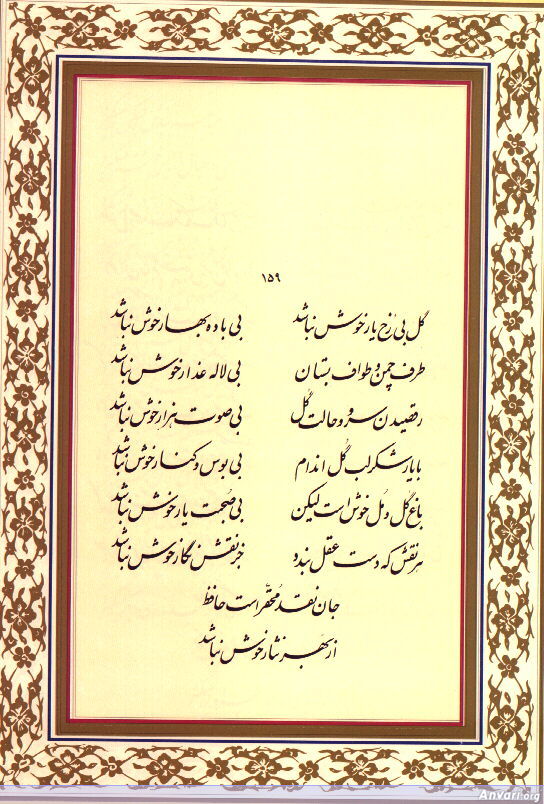 ۱۵۹
گل بی رُخ یار خوش نباشد بی باده بهار خوش نباشد
طرف چمن و طواف بستان بی لاله عذار خوش نباشد
رقصیدن سرو و حالت گُل بی صوت هزار خوش نباشد
با یار شکر لب گُل اندام بی بوس و کنار خوش نباشد
باغ گُل و مُل خوش است لیکن بی صُحبت یار خوش نباشد
هر نقش که دست عقل بندد جز نقش نگار خوش نباشد
جان نقد مُحقّر است حافظ
از بهر نثار خوش نباشد
Anvari.org